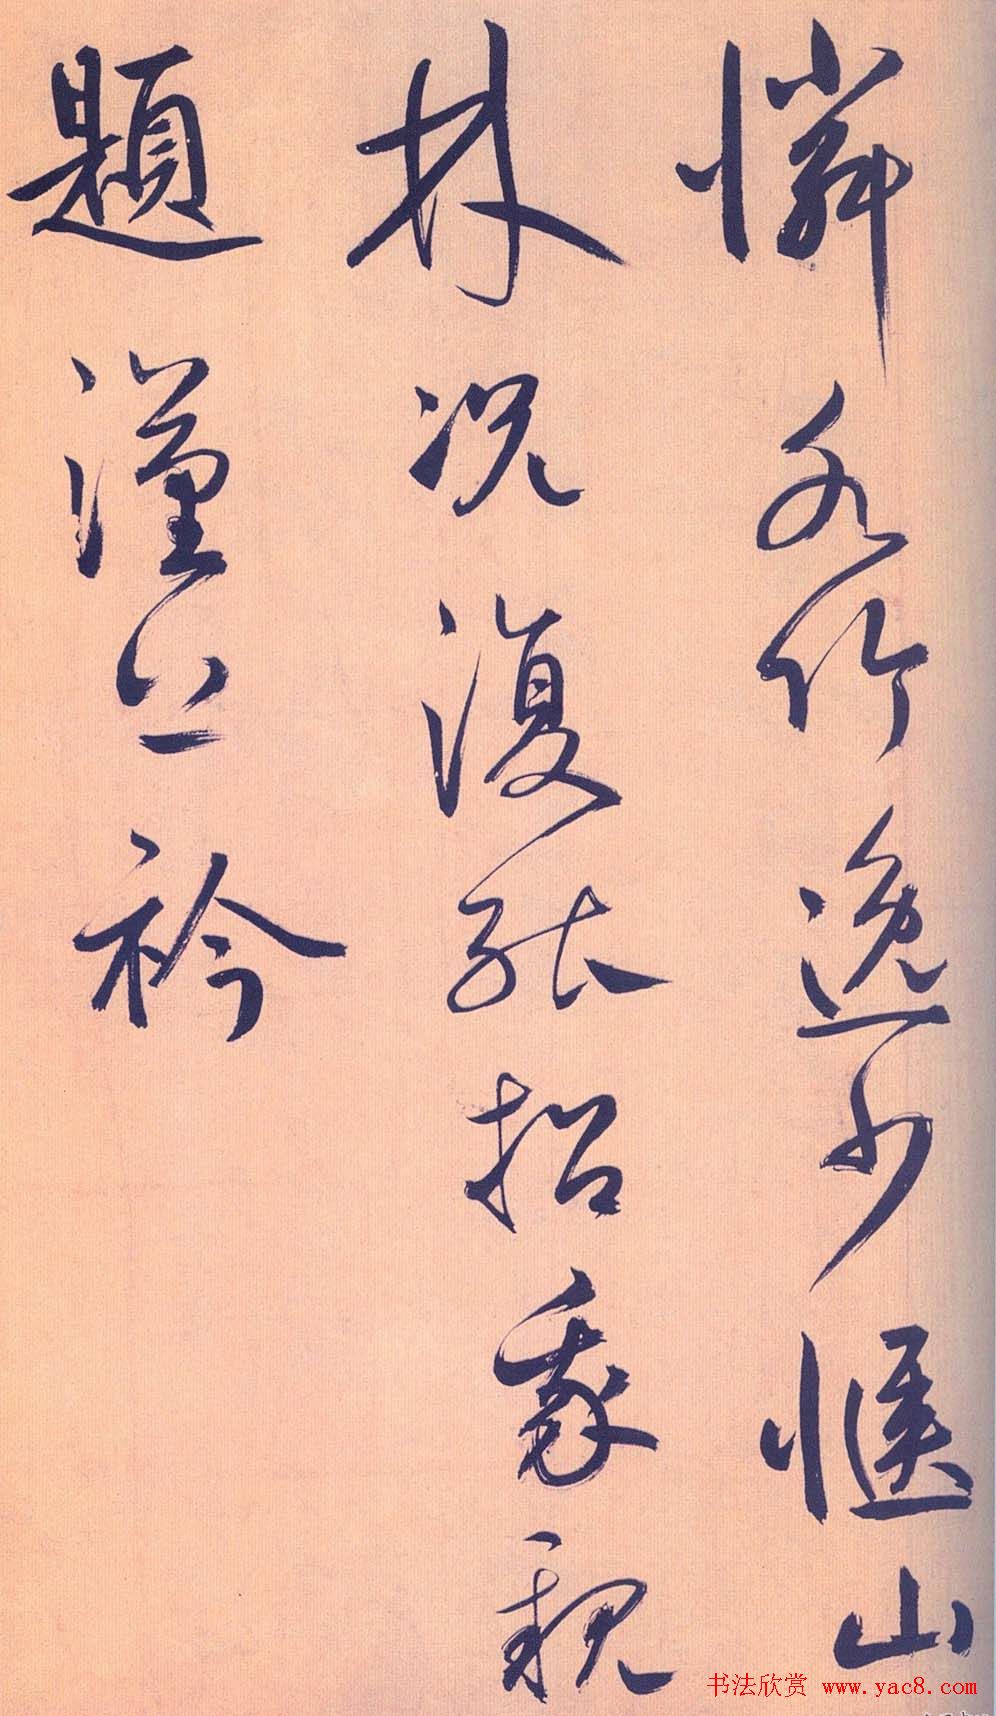 憐水竹逸少愜山
林況復能招我親
題上衿
书法欣赏 www.yac8.com